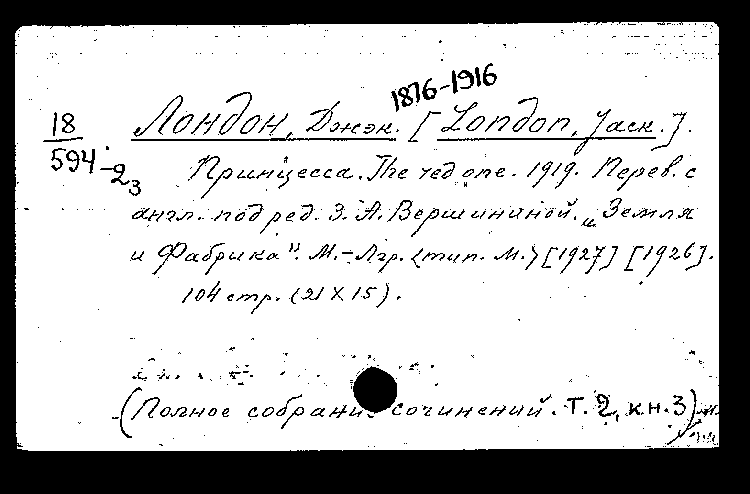 1876-1916
18
594-2₃
Лондон, Джэк. [London, Jack.].
Принцесса. The red one. 1919. Перев. с
англ. под ред. З. А. Вершининой. „Земля
и Фабрика". М.-Лгр. (тип. М.) [1927] [1926].
104 стр. (21 X 15).
(Полное собрание сочинений. Т. 2, кн. 3)